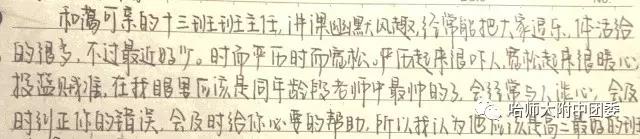 和蔼可亲的十三班班主任,讲课幽默风趣,经常能把大家逗乐,作活给
的很多,不过最近好少。时而严厉时而宽松。严厉起来很吓人,宽松起来很暖心,
投篮贼准,在我眼里应该是同年龄段老师中最帅的了,会经常与人谈心,会及
时纠正你的错误,会及时给你必要的帮助,所以我认为他应该是高三最好的班
哈师大附中团委